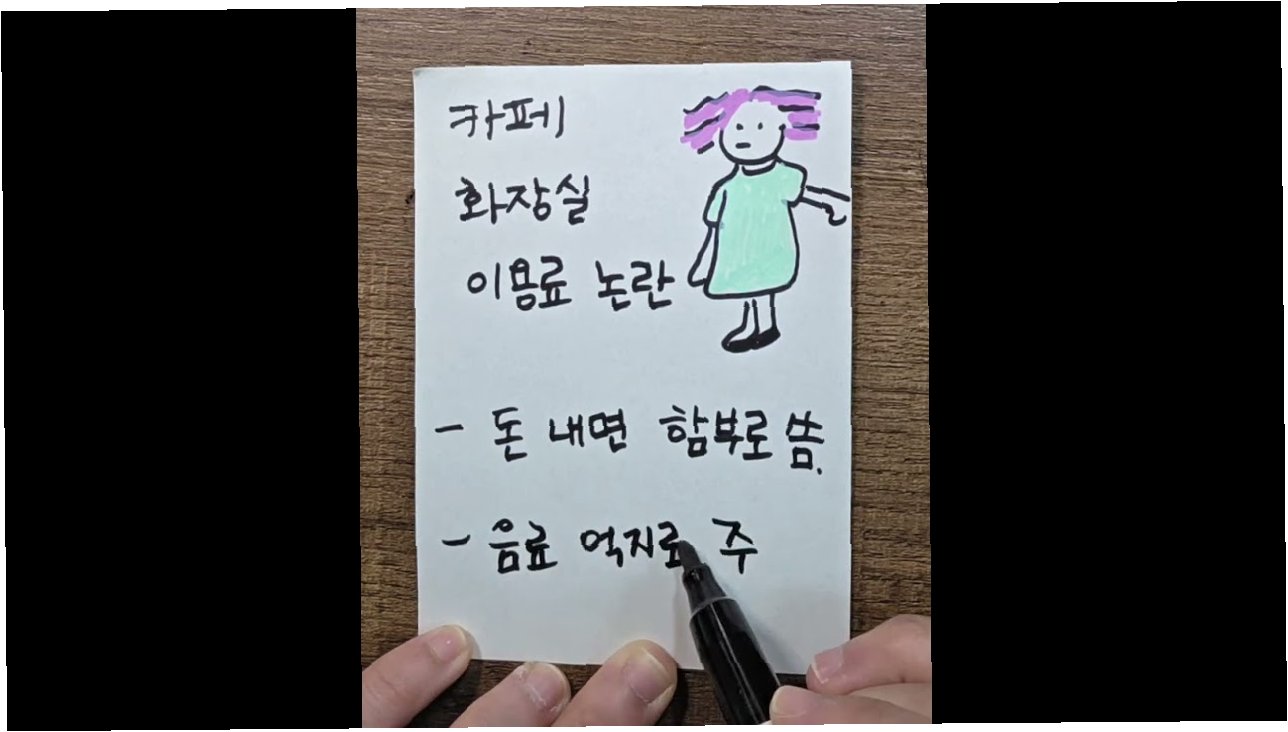 카페
화장실
이용료 논란
- 돈 내면 함부로 씀.
- 음료 억지로 주